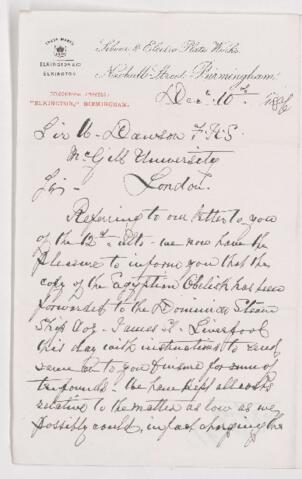 TRADE MARKS
ELKINGTON & Co
ELKINGTON
Silver & Electro Plate Works.
Newhall Street, Birmingham
TELEGRAPHIC ADDRESS:
"ELKINGTON," BIRMINGHAM.
Dec. 10th
Sir W. Dawson F.R.S
McGill University
London.
Sir -
Referring to our letter to you
of the 12th ulto - we now have the
pleasure to inform you that the
copy of the Egyptian Obelisk has been
forwarded to the Dominion Steam
Ship Coy - James St - Liverpool
this day with instructions to send
same on to you & insure for sum of
ten pounds - We have kept all costs
relative to the matter as low as we
possibly could, in fact charging the